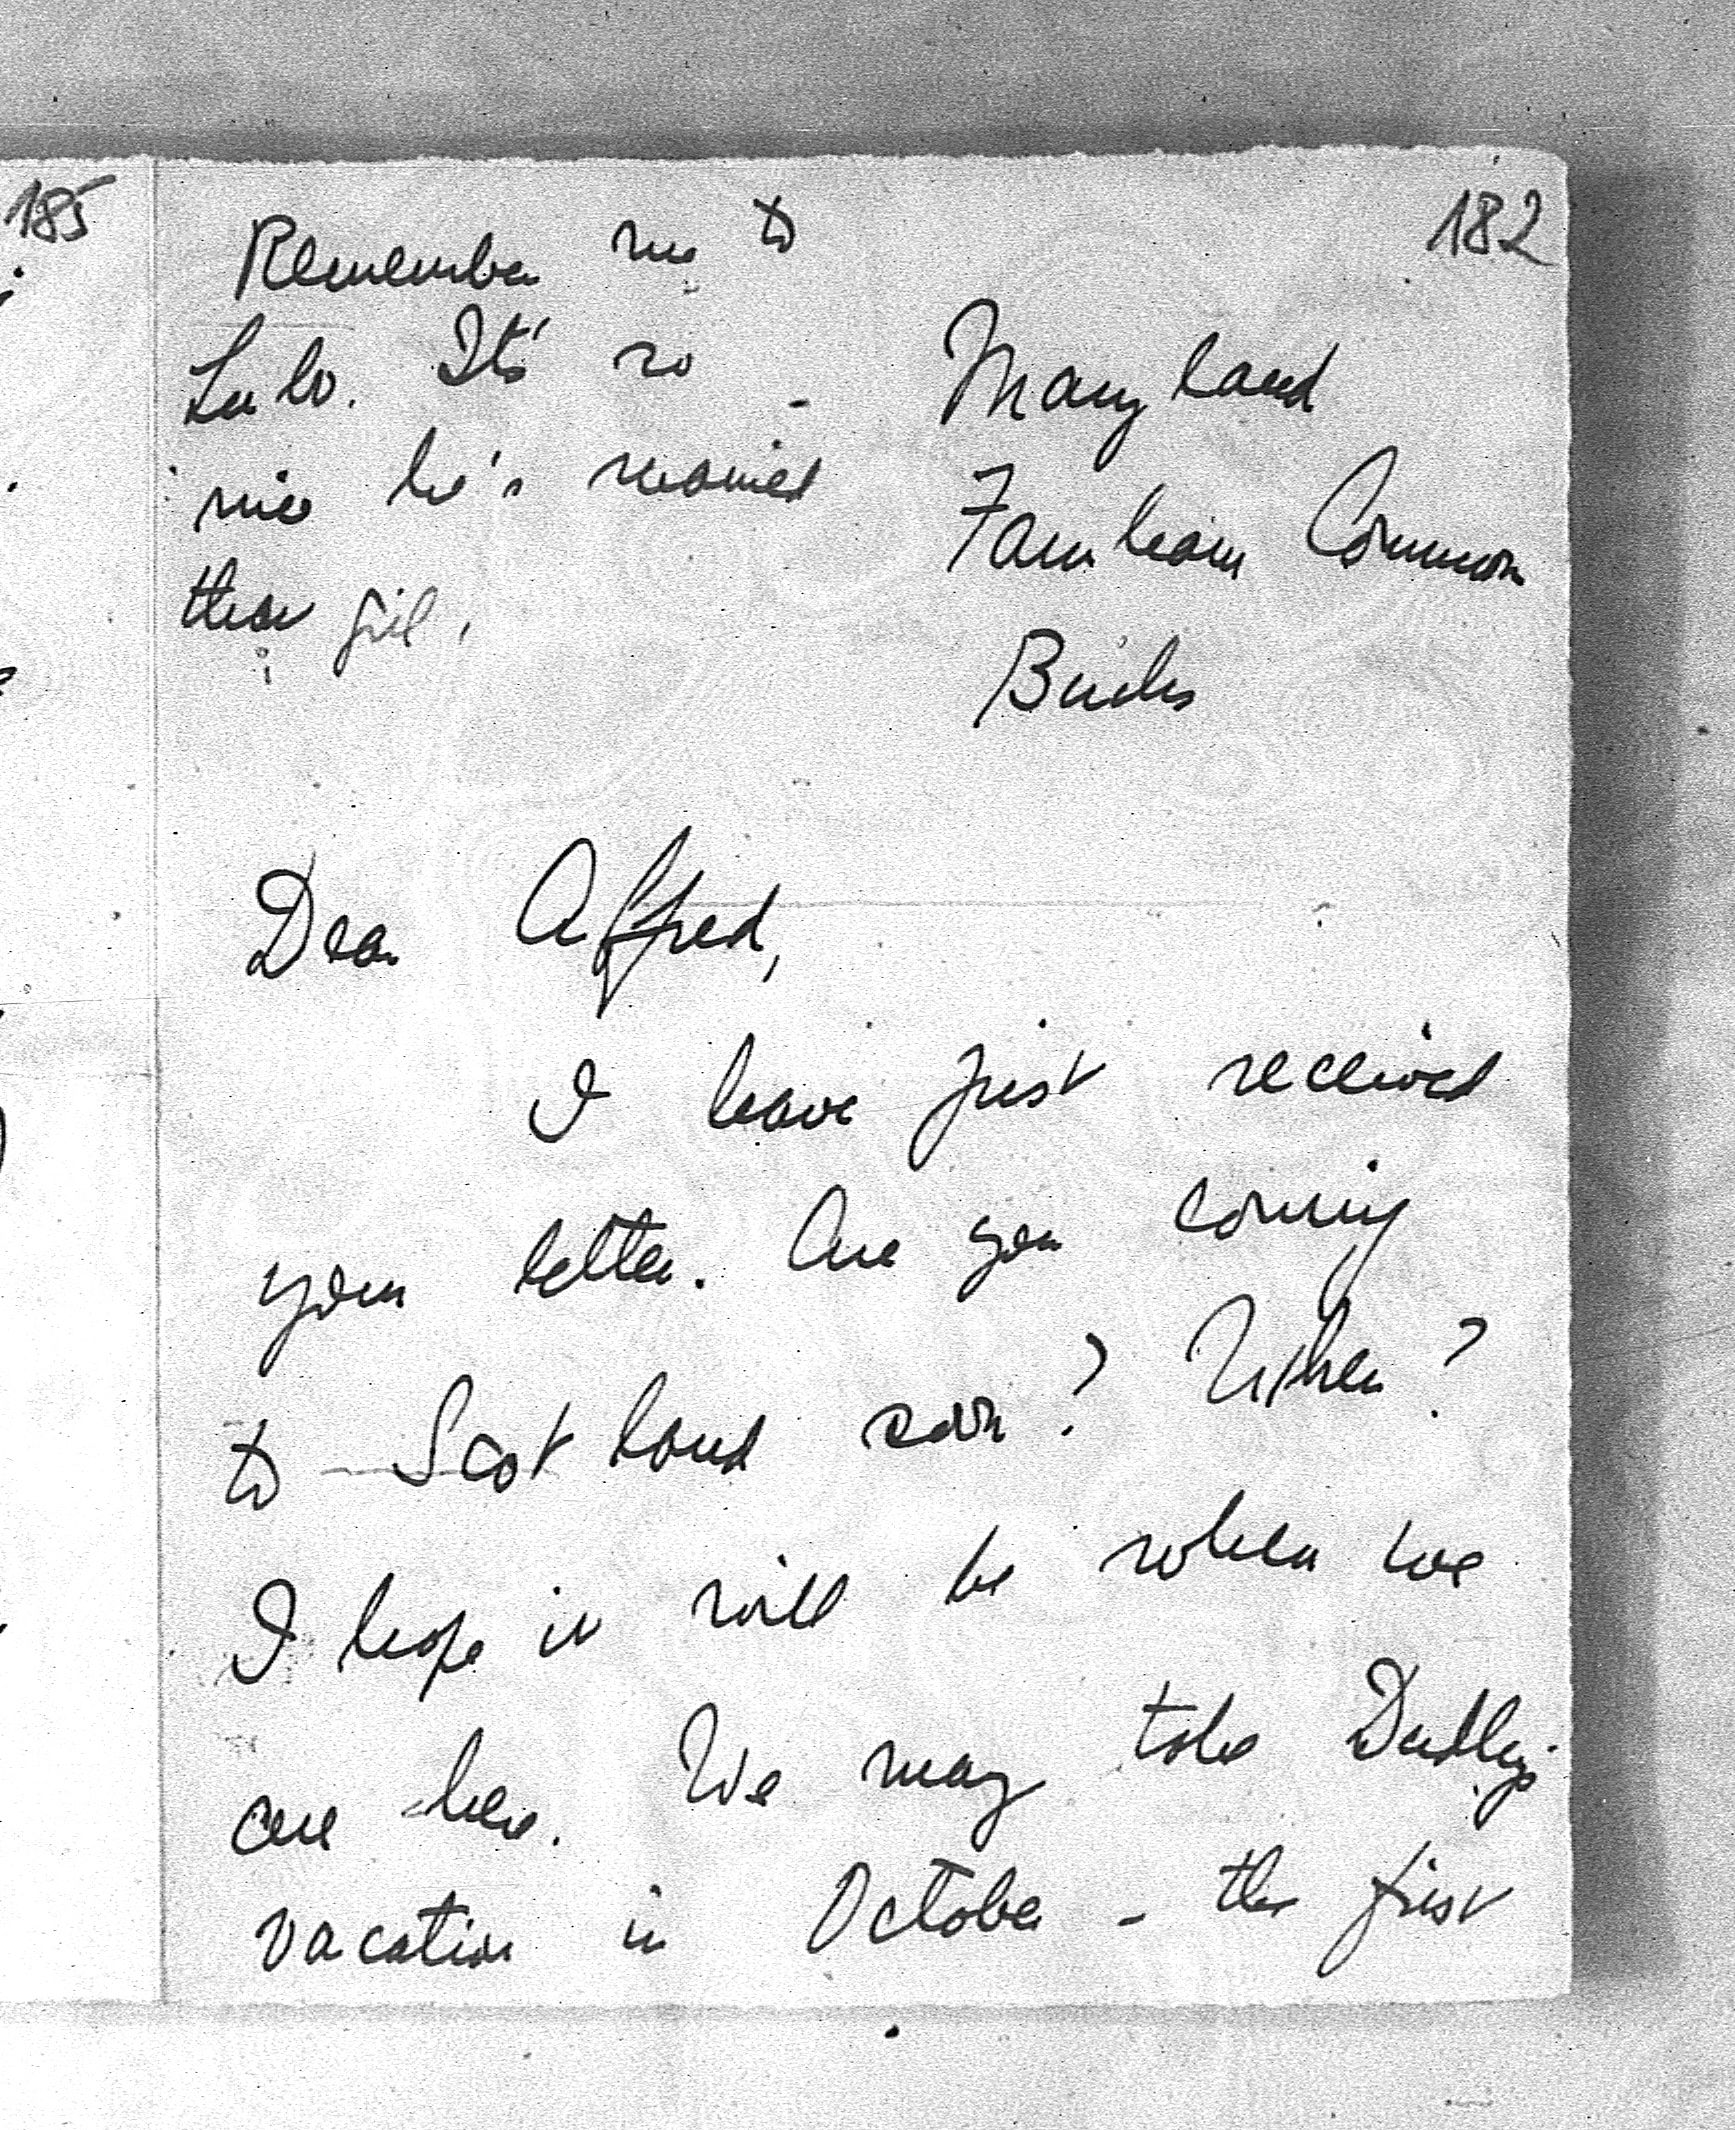 185
182
Remember me to
Lulo. It's so -
nice he's married
that girl.
Maryland
Farnham Common
Bucks
Dear Alfred,
I have just received
your letter. Are you coming
to Scotland soon? When?
I hope it will be when we
are here. We may take Dudley's
vacation in October - the first